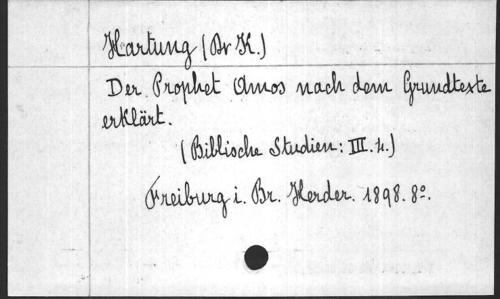 Hartung (Dr K.)
Der Prophet Amos nach dem Grundtexte
erklärt.
(Biblische Studien: III. 4.)
Freiburg i. Br. Herder. 1898. 8º.